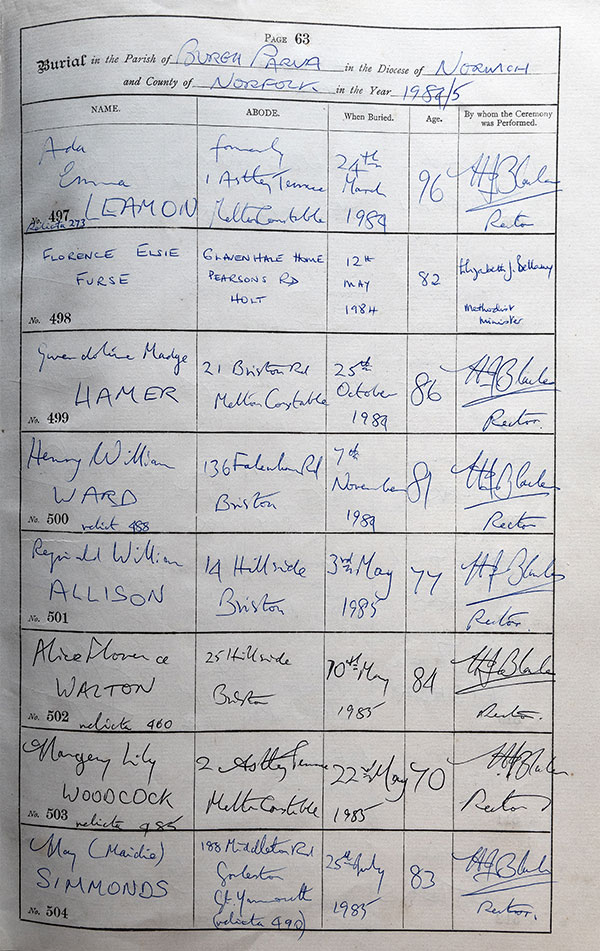 PAGE 63
Burial in the Parish of BURGH PARVA in the Diocese of NORWICH
and County of NORFOLK in the Year 1984/5
NAME. ABODE. When Buried. Age. By whom the Ceremony was Performed.
Ada
Emma
LEAMON
No. 497
Relicta 273
formerly
1 Astley Terrace
Melton Constable
24th
March
1984
96
Rector
FLORENCE ELSIE
FURSE
No. 498
GLAVENHALE HOME
PEARSONS RD
HOLT
12th
MAY
1984
82
Elizabeth J. Bellamy
Methodist
Minister
Gwendoline Madge
HAMER
No. 499
21 Briston Rd
Melton Constable
25th
October
1984
86
Rector.
Henry William
WARD
No. 500 relict 488
136 Fakenham Rd
Briston
7th
November
1984
81
Rector
Reginald William
ALLISON
No. 501
14 Hillside
Briston
3rd May
1985
77
Rector.
Alice Florence
WALTON
No. 502 relicta 460
25 Hillside
Briston
10th May
1985
84
Rector.
Margery Lily
WOODCOCK
No. 503 relicta 485
2 Astley Terrace
Melton Constable
22nd May
1985
70
Rector
May (Maidie)
SIMMONDS
No. 504
188 Middleton Rd
Gorleston
Gt. Yarmouth
(relicta 490)
25th July
1985
83
Rector.